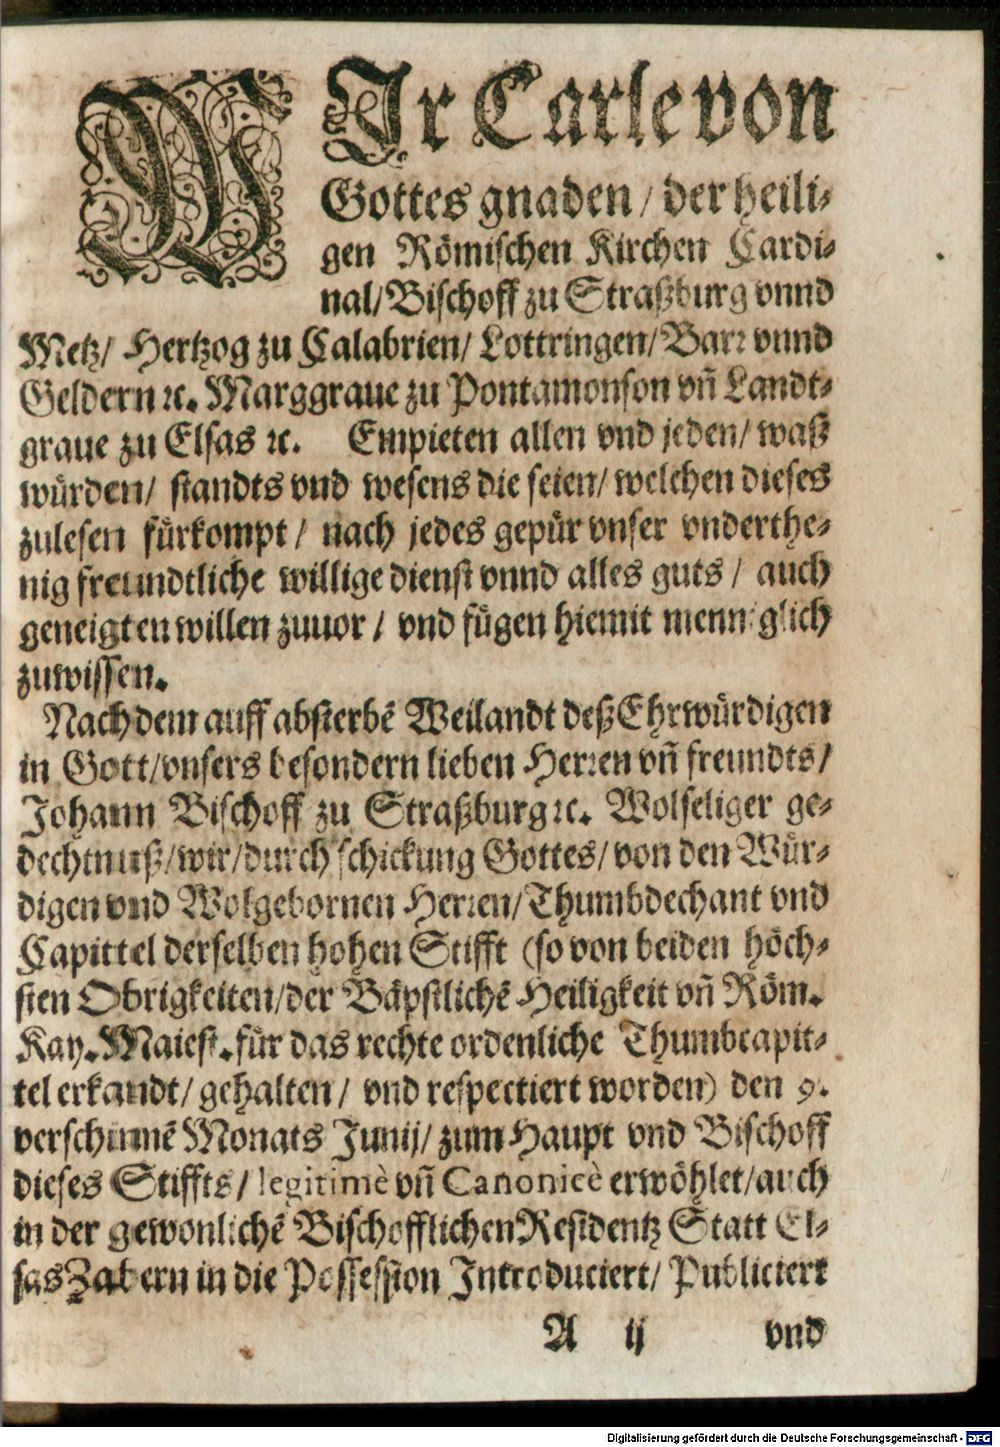 WIr Carle von
Gottes gnaden / der heili⸗
gen Römischen Kirchen Cardi⸗
nal / Bischoff zu Straßburg vnnd
Metz / Hertzog zu Calabrien / Lottringen / Barr vnnd
Geldern ꝛc. Marggraue zu Pontamonson vñ Landt⸗
graue zu Elsas ꝛc. Empieten allen vnd jeden / waß
würden / standts vnd wesens die seien / welchen dieses
zulesen fürkompt / nach jedes gepür vnser vnderthe⸗
nig freundtliche willige dienst vnnd alles guts / auch
geneigten willen zuuor / vnd fügen hiemit menniglich
zuwissen.
Nach dem auff absterbẽ Weilandt deß Ehrwürdigen
in Gott / vnsers besondern lieben Herren vñ freundts /
Johann Bischoff zu Straßburg ꝛc. Wolseliger ge⸗
dechtnuß / wir / durch schickung Gottes / von den Wür⸗
digen vnd Wolgebornen Herren / Thumbdechant vnd
Capittel derselben hohen Stifft (so von beiden höch⸗
sten Obrigkeiten / der Bäpstlichẽ Heiligkeit vñ Röm.
Kay. Maiest. für das rechte ordenliche Thumbcapit⸗
tel erkandt / gehalten / vnd respectiert worden) den 9.
verschinnẽ Monats Junij / zum Haupt vnd Bischoff
dieses Stiffts / legitimè vñ Canonicè erwöhlet / auch
in der gewonlichẽ Bischofflichen Residentz Statt El⸗
sas Zabern in die Possession Introduciert / Publiciert
A ij vnd
Digitalisierung gefördert durch die Deutsche Forschungsgemeinschaft - DFG